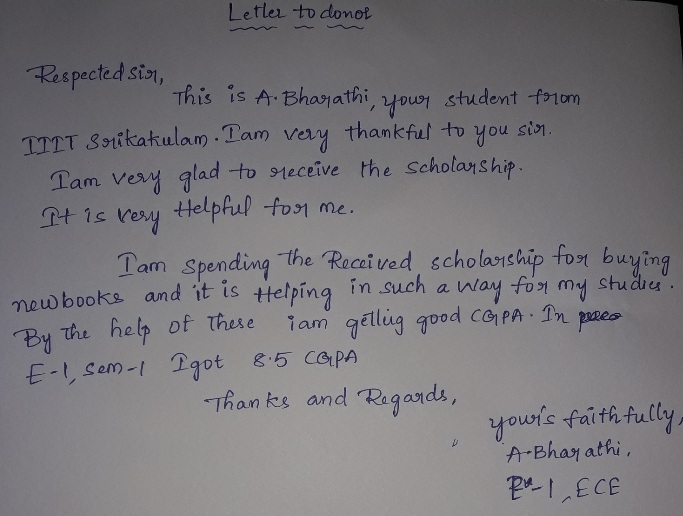 Letter to donor
Respected sir,
This is A.Bharathi, your student from
IIIT Srikakulam. I am very thankful to you sir.
I am very glad to receive the scholarship.
It is very Helpful for me.
I am spending the Received scholarship for buying
new books and it is Helping in such a way for my studies.
By the help of these iam getting good CGPA. In
E-1, Sem-1 I got 8.5 CGPA
Thanks and Regards,
your's faithfully,
A.Bharathi,
E-1, ECE